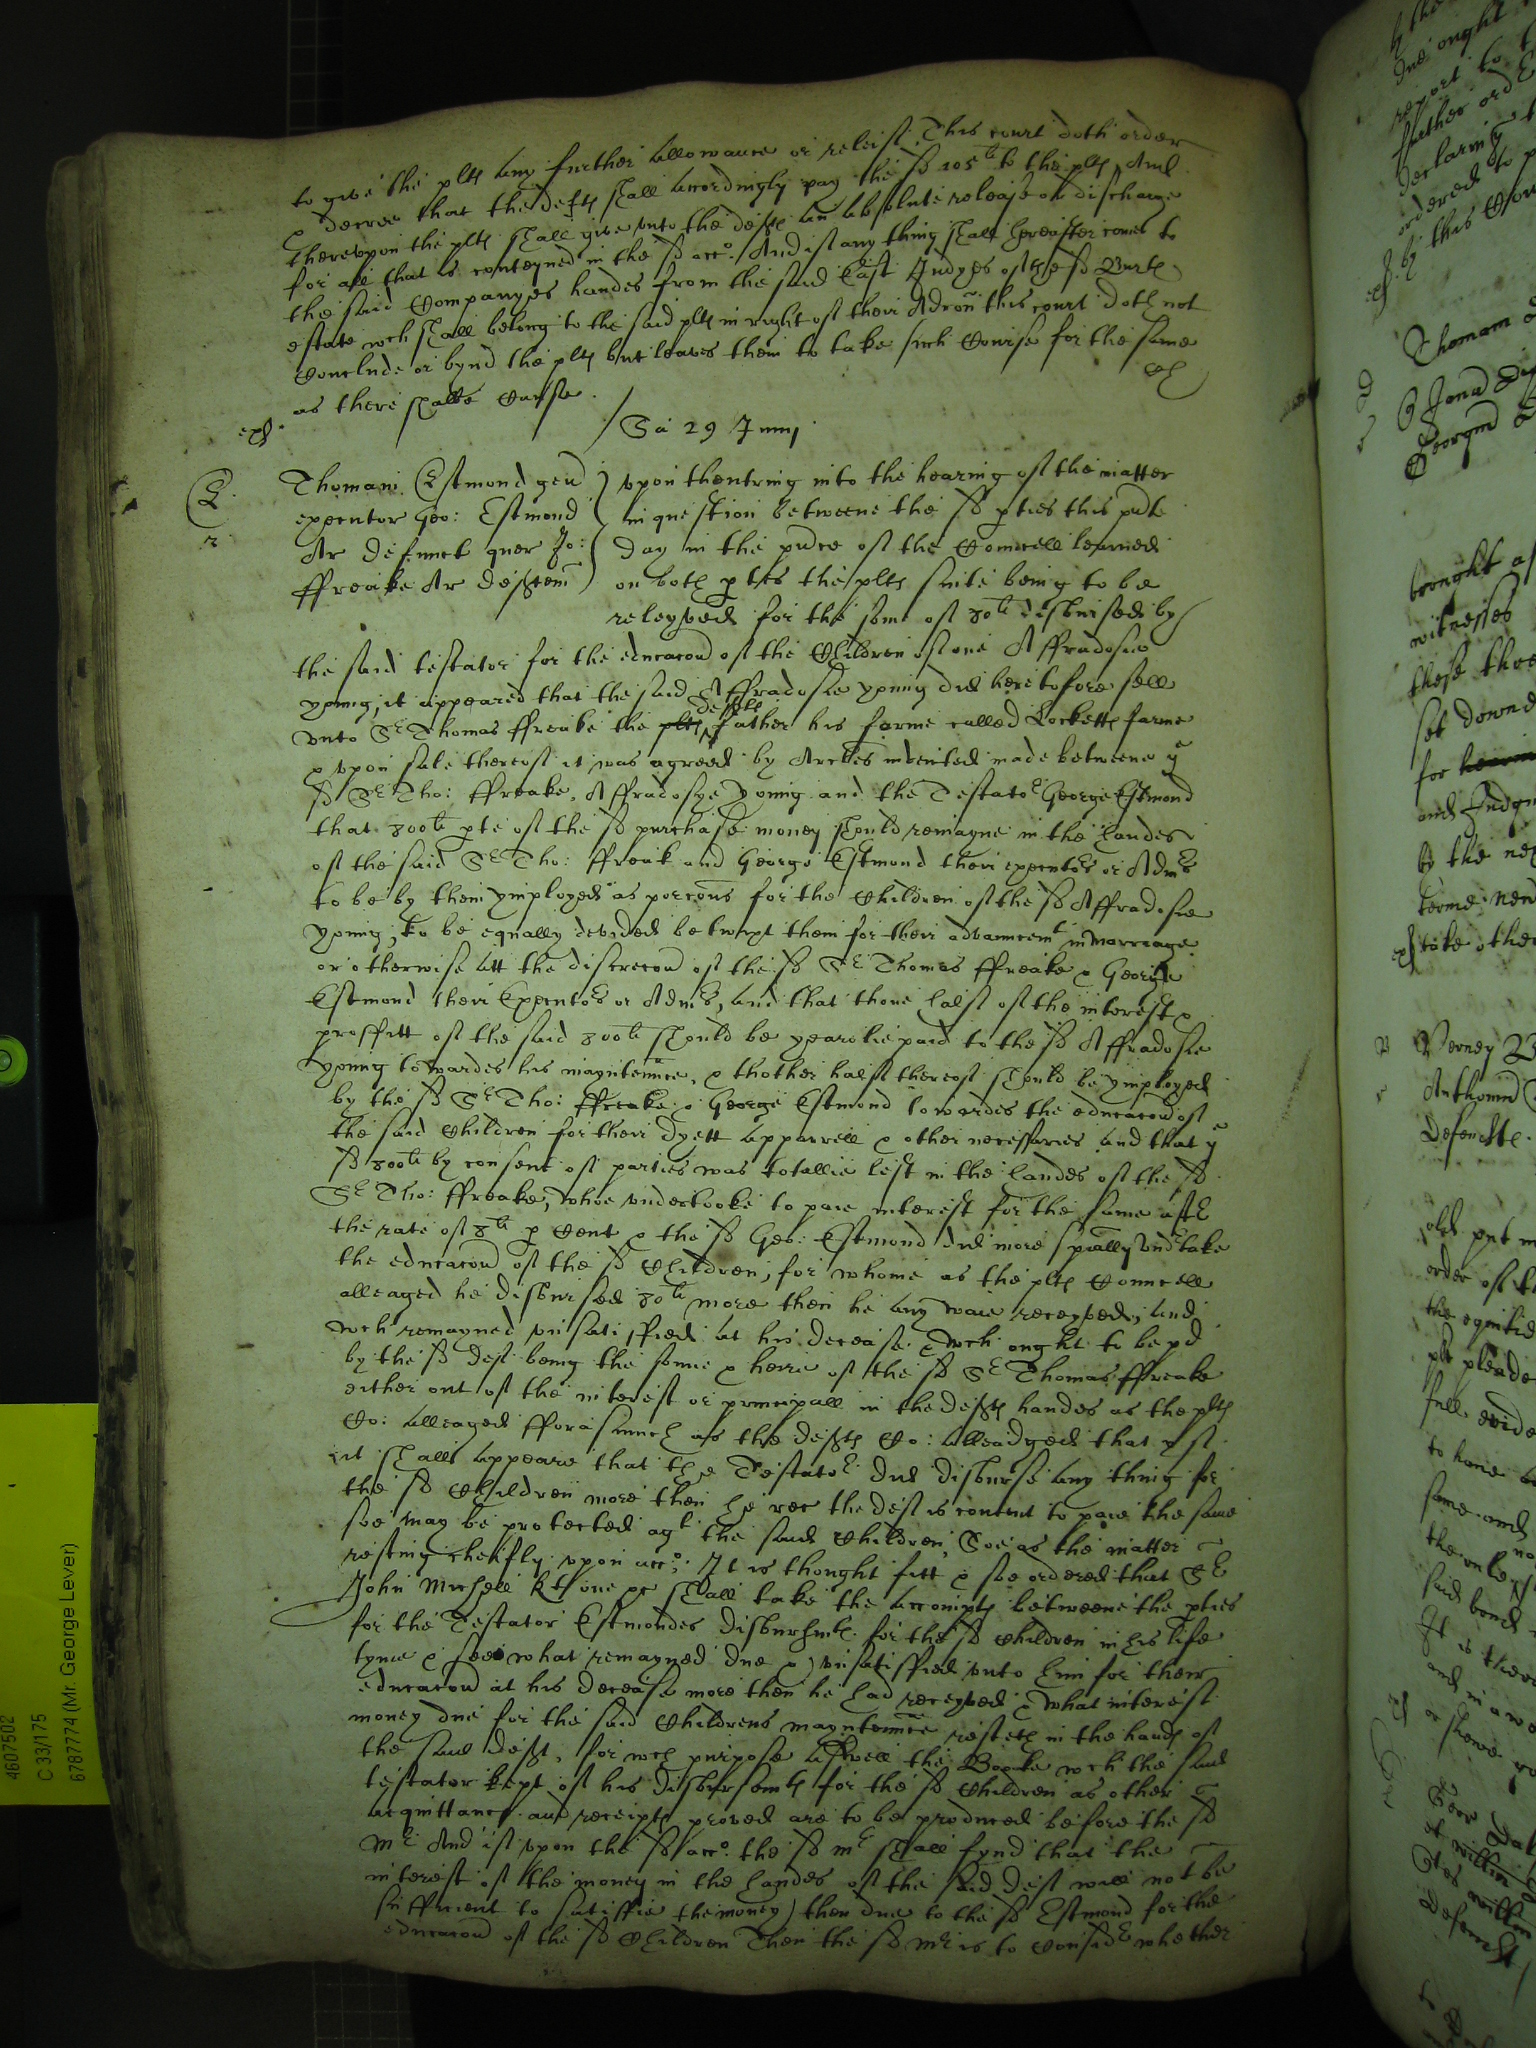 to give the plts any further allowance or releif. This court doth order
& decree that the defts shall accordingly pay the sd 105li to the plts And
thereupon the plts shall give unto the defts an absolute release or discharge
for all that is conteyned in the sd acco. And if any thing shall hereafter come to
the said Companyes handes from the said East Indyes of the sd
estate wch shall belong to the said plts in right of their Admon this court doth not
conclude or bynd the plts but leaves them to take such Course for the same
as there shalbe Cause.
exr
Sa 29 Junij
E
r
Thomam Estmond gen
executor Geo: Estmond
Ar defunct quer Jo:
ffreake Ar deften
upon thentring into the hearing of the matter
in question betweene the sd pties this pnte
day in the pnce of the Councell learned
on both ptes the plts suite being to be
releyved for the some of 80li disbursed by
the said testator for the educacon of the Children of one Affradosie
yonng, it appeared that the said Affradosie yonng did heretofore sell
unto Sr Thomas ffreake the plts defts father his farme called Locketts farme
& upon sale thereof it was agreed by Arcles indented made betweene ye
sd Sr Tho: ffreake, Affradosye Yonng and the Testator George Estmond
that 800li pte of the sd purchase money should remayne in the handes
of the said Sr Tho: ffreak and George Estmond their executors or Admrs
to be by them ymployed as porcons for the Children of the sd Affradosie
yonng, to be equally devided betwixt them for their advancemt in marriage
or otherwise att the discrecon of the sd Sr Thomas ffreake & George
Estmond their Executors or Admrs, and that thone halfe of the interest &
proffitt of the said 800li should be yearelie paid to the sd Affradosie
yonng towardes his mayntennce, & thother halfe thereof should be ymployed
by the sd Sr Tho: ffreake & George Estmond towardes the educacon of
the said Children for their dyett apparrell & other necessaries and that ye
sd 800li by consent of parties was totallie left in the handes of the sd
Sr Tho: ffreake, whoe undertooke to paie interest for the same after
the rate of 8li p Cent & the sd Geo: Estmond did more specially undertake
the educacon of the sd Children, for whome as the plts Councell
alleaged he disbursed 80li more then he any waie receyved, and
wch remayned unsatisfied at his decease & wch ought to be pd
by the sd deft being the sonne & heire of the sd Sr Thomas ffreake
either out of the interest or principall in the defts handes as the plts
Co: alleaged fforasmuch as the defts Co: alleadged that yf
it shall appeare that the Testator did disburse any thing for
the sd Children more then he rec the deft is content to paie the same
soe may be protected agt the said Children, Soe as the matter
resting cheifly upon acco; It is thought fitt & soe ordered that Sr
John Michell kt one &c shall take the accompts betweene the pties
for the Testator Estmondes disbursmts for the sd Children in his life
tyme & see what remayned due & unsatisfied unto him for their
educacon at his decease more then he had receyved & what interest
money due for the said Childrens mayntennce resteth in the hands of
the said deft, for wch purpose aswell the Booke wch the said
testator kept of his disbursemts for the sd Children as other
acquittances and receipts proved are to be produced before the sd
Mr And if upon the sd acco. the sd Mr shall fynd that the
interest of the money in the handes of the said deft will not be
sufficient to satisfie the money then due to the sd Estmond for the
educacon of the sd Children Then the sd Mr is to consider whether
4607502
C 33/175
6787774 (Mr. George Lever)
due ought
report to
further ord
declaring
ordered to
by this Cour
Thomam
Jona
Georgiu
brought
witnesses
these thre
set downe
for
and Judgm
to the nex
terme
take other
Verney
Anthoniu
Defendte
order of th
the equitie
plt pleade
full evide
to have
same and
the
said bond
It is there
and in
or shewe